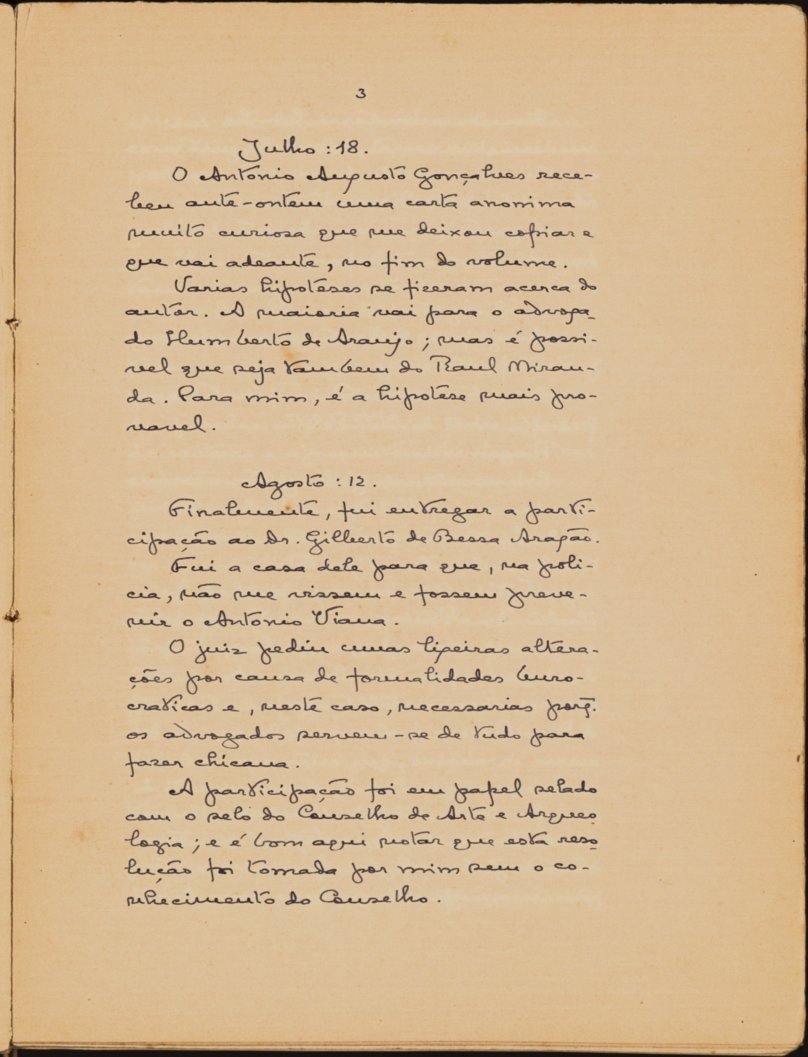 3
Julho : 18.
O Antonio Augusto Gonçalves rece-
beu ante-ontem uma carta anonima
muito curiosa que me deixou copiar e
que vai adeante, no fim do volume.
Varias hipoteses se fizeram acerca do
autor. A maioria vai para o advoga-
do Humberto de Araujo; mas é possi-
vel que seja tambem do Raul Miran-
da. Para mim, é a hipotese mais pro-
vavel.
Agosto : 12.
Finalmente, fui entregar a parti-
cipação ao Dr. Gilberto de Bessa Aragão.
Fui a casa dele para que, na poli-
cia, não me vissem e fossem preve-
nir o Antonio Viana.
O juiz pediu umas ligeiras altera-
ções por causa de formalidades buro-
craticas e, neste caso, necessarias porq̃.
os advogados servem-se de tudo para
fazer chicana.
A participação foi em papel selado
com o selo do Conselho de Arte e Arqueo
logia; e é bom aqui notar que esta reso
lução foi tomada por mim sem o co-
nhecimento do Conselho.